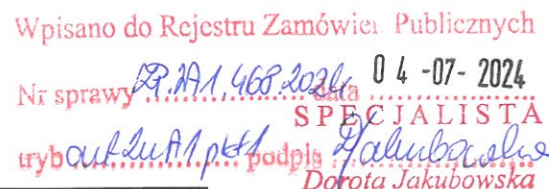 Wpisano do Rejestru Zamówień Publicznych
Nr sprawy ZP.2A1.468.2024 data 04-07-2024
SPECJALISTA
tryb art 2u1 pkt1 podpis Jakubowska
Dorota Jakubowska